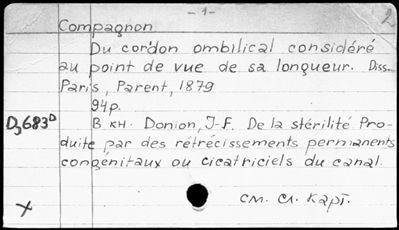 - 1 -
2
Compagnon
Du cordon ombilical considéré
au point de vue de sa longueur. Diss.
Paris, Parent, 1879
94p.
D3683D В кн. Donion, J-F. De la stérilité Pro-
duite par des rétrécissements permanents
congénitaux ou cicatriciels du canal.
см. сл. карт.
X